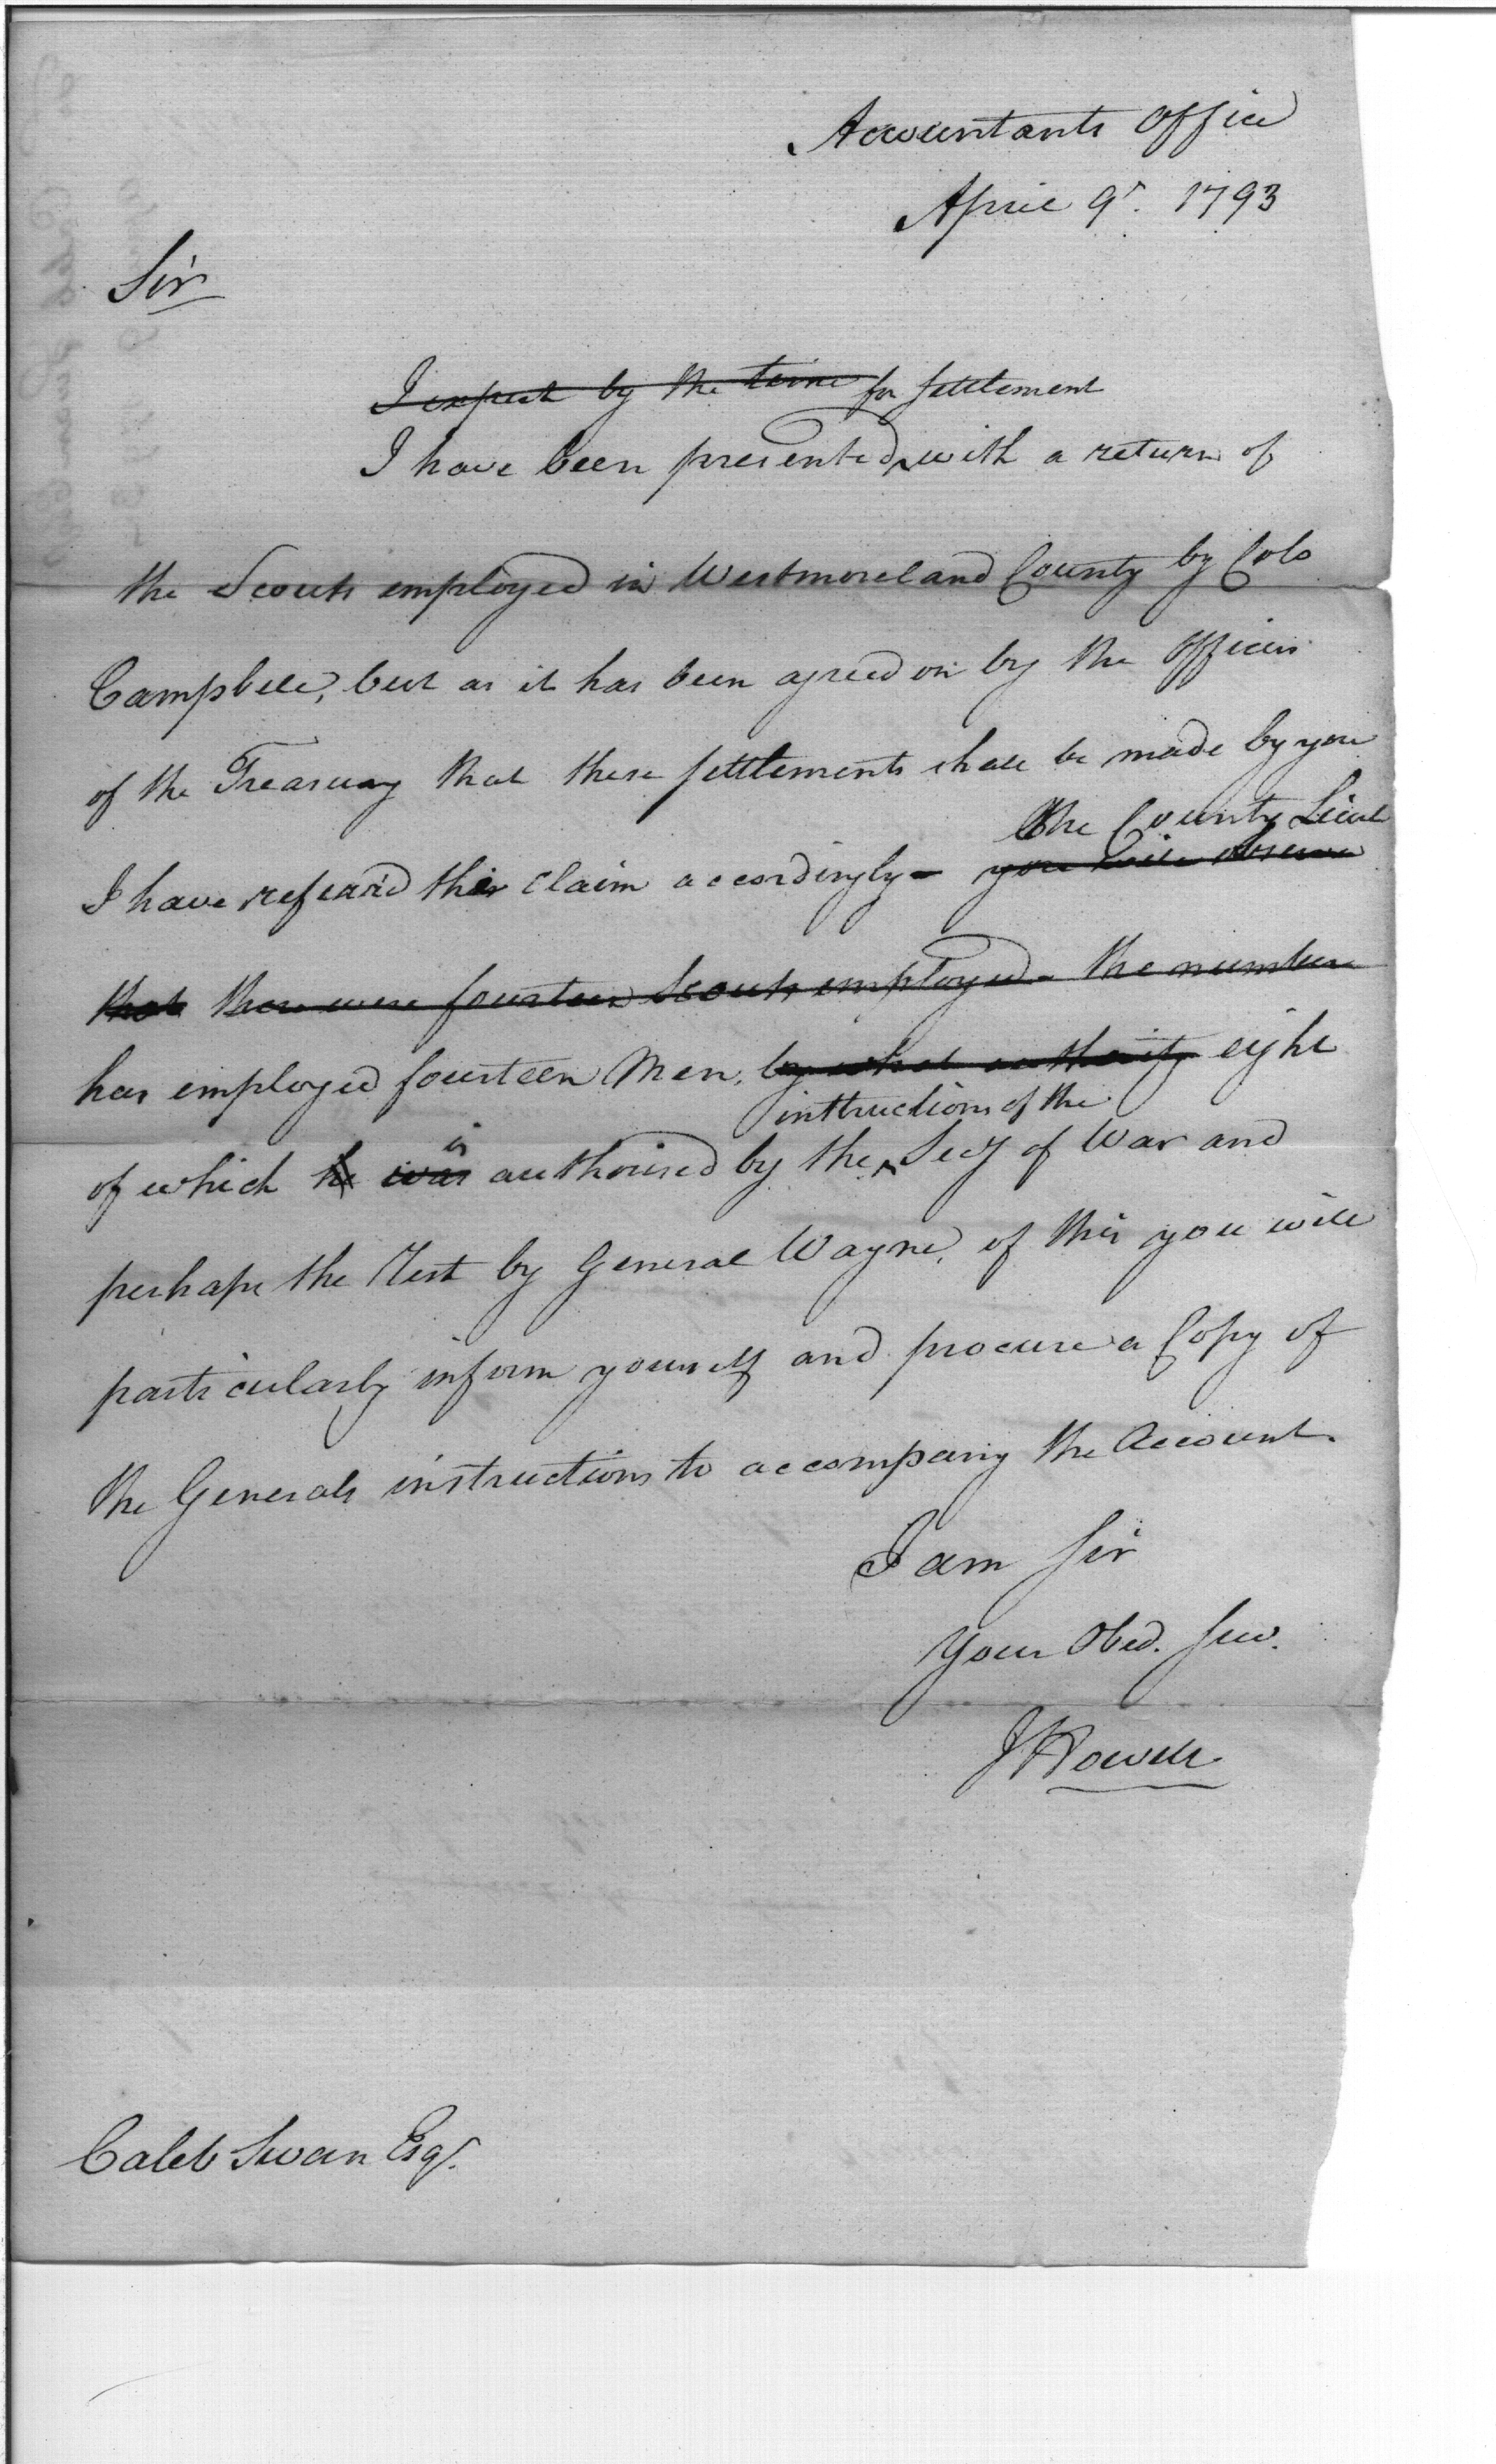 Accountants Office
April 9th. 1793
Sir
I expect by the time for settlement
I have been presented with a return of
the Scouts employed in Westmoreland County by Colo
Campbell, but as it has been agreed on by the Officers
of the Treasury that these settlements shall be made by you
The County Lieut
I have referr'd this claim accordingly - you will observe
that there were fourteen Scouts employed - the number
has employed fourteen Men, by what authority eight
instructions of the
is
of which he was authorised by the Secy of War and
perhaps the Rest by General Wayne, of this you will
particularly inform yourself and procure a Copy of
the Generals instructions to accompany the Account.
I am Sir
Your Obed. Serv.
J Howell
Caleb Swan Esqr.